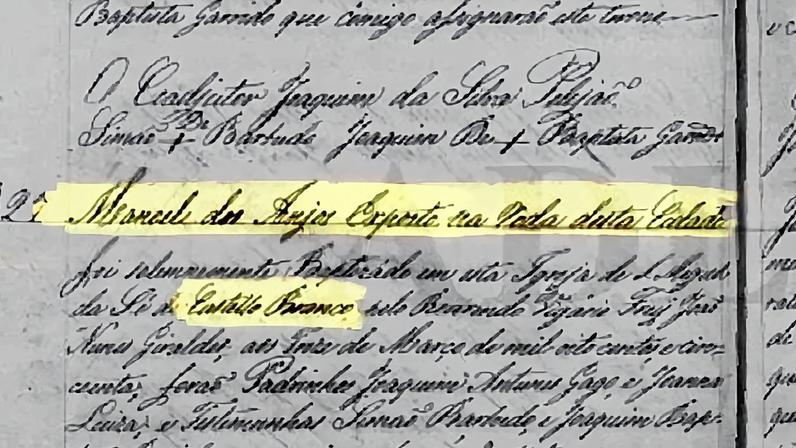 Baptista Garrido que comigo assignarão este termo
O Coadjutor Joaquim da Silva Pelejão
Simão + Barbudo Joaquim + Baptista Garrido
Manoel dos Anjos Exposto na Roda desta Cidade
foi solemnemente Baptizado em esta Igreja de S. Miguel
da Sé de Castello Branco, pelo Reverendo Vigário Frey João
Nunes Giraldes, aos Treze de Março de mil oito centos e cin-
coenta, forão Padrinhos Joaquim Antunes Gago, e Joanna
Luiza, e Testemunhas Simão Barbudo, e Joaquim Bap-